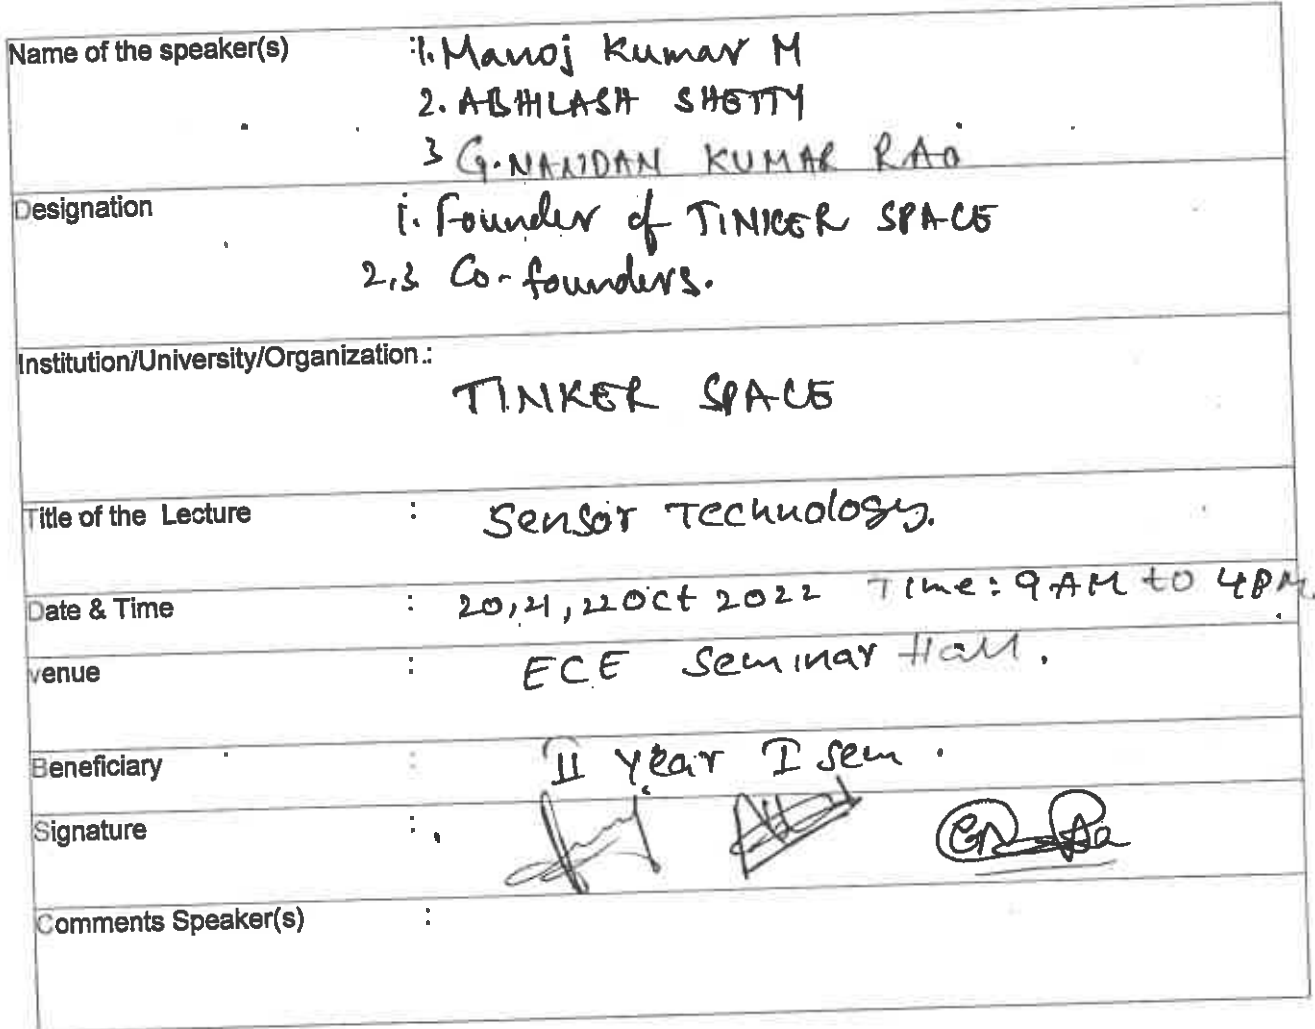 Name of the speaker(s) :1. Manoj Kumar M
2. ABHILASH SHETTY
3 G. NANDAN KUMAR RAO
Designation 1. Founder of TINKER SPACE
2,3 Co-founders.
Institution/University/Organization :
TINKER SPACE
Title of the Lecture : Sensor Technology.
Date & Time : 20,21,22 Oct 2022 Time: 9 AM to 4 PM.
venue : ECE Seminar Hall.
Beneficiary : II Year I sem.
Signature :
Comments Speaker(s) :